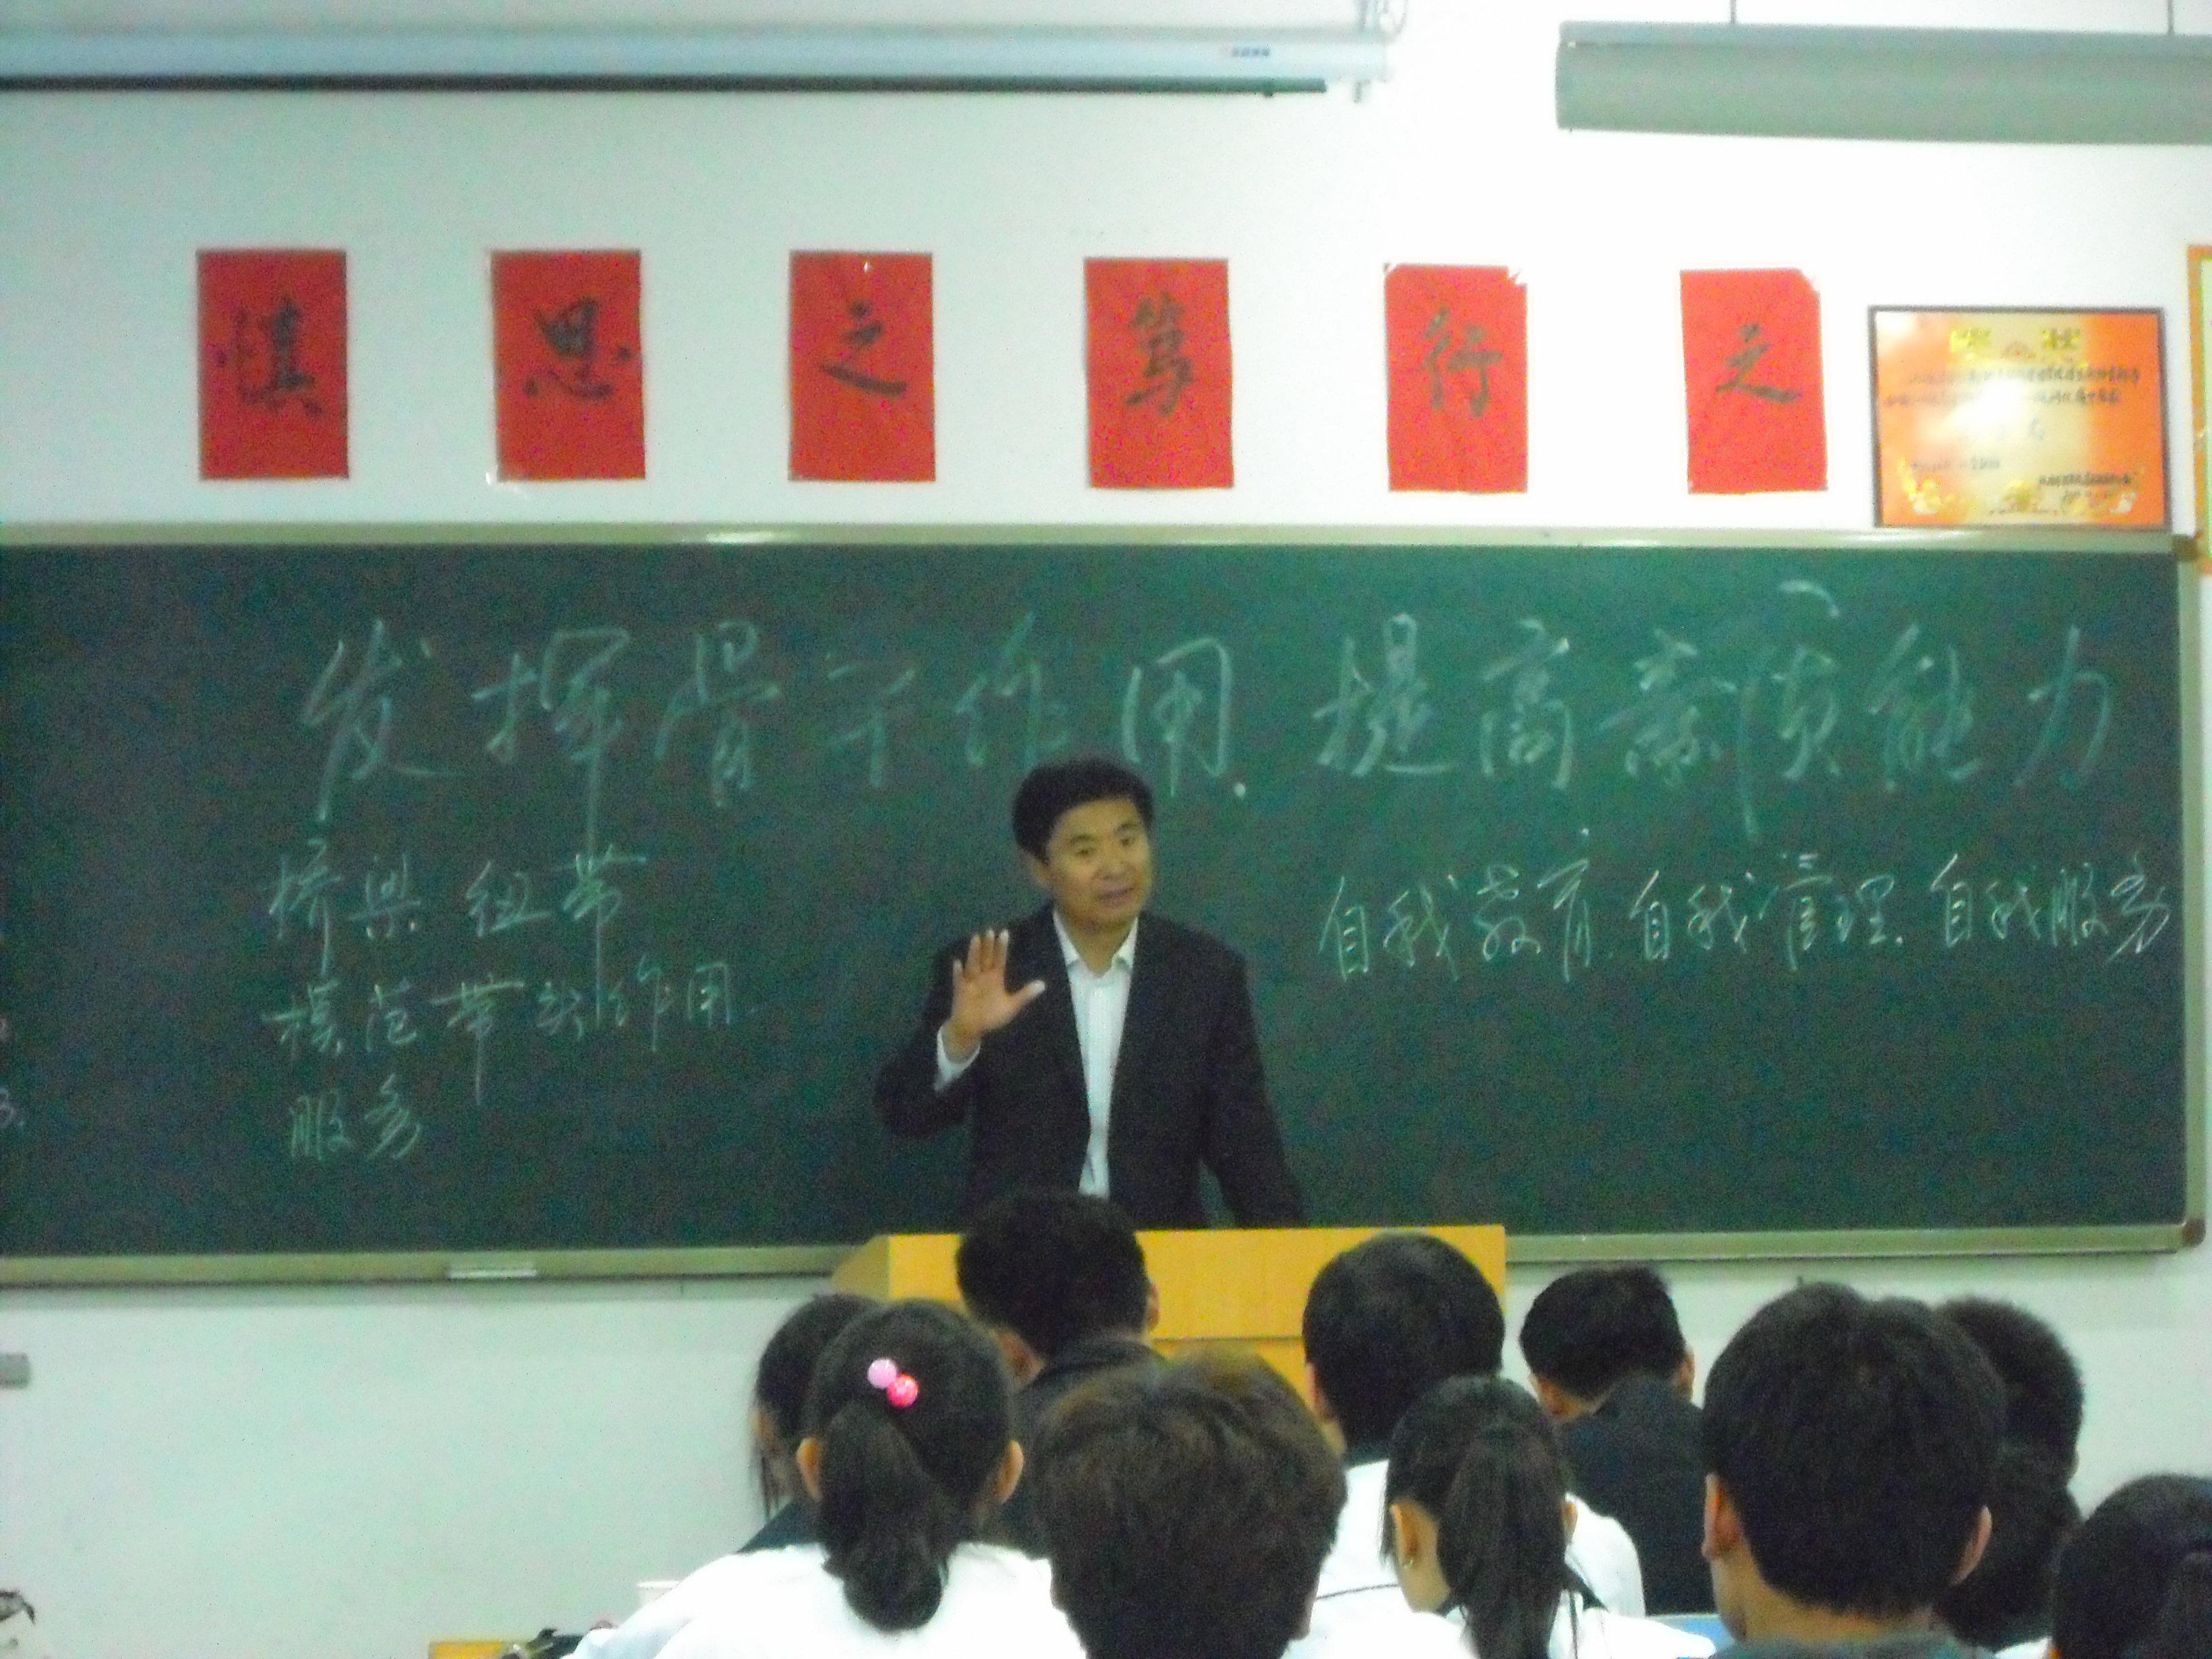 慎思之笃行之
奖状
发挥骨干作用.提高素质能力
桥梁 纽带
模范带头作用.
服务
自我教育.自我管理.自我服务